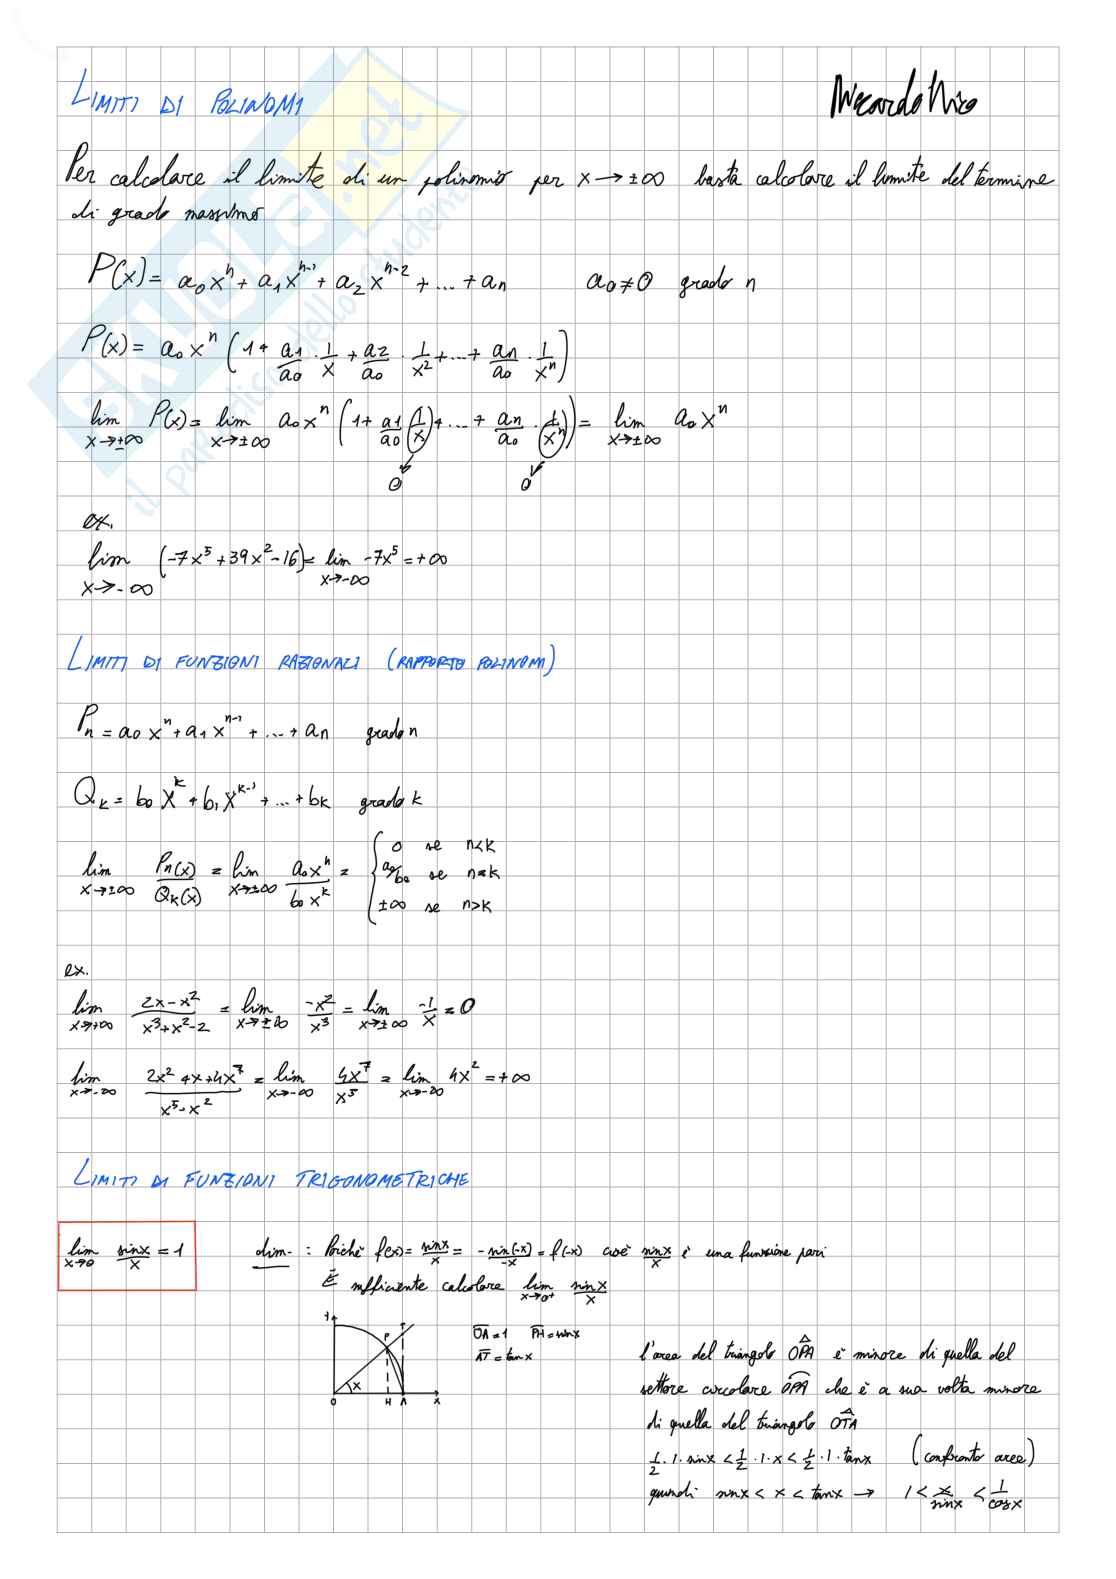 LIMITI DI POLINOMI
Per calcolare il limite di un polinomio per x → ±∞ basta calcolare il limite del termine
di grado massimo
P(x) = a₀xⁿ + a₁xⁿ⁻¹ + a₂xⁿ⁻² + ... + aₙ a₀ ≠ 0 grado n
P(x) = a₀xⁿ (1 + a₁/a₀ · 1/x + a₂/a₀ · 1/x² + ... + aₙ/a₀ · 1/xⁿ)
lim x→±∞ P(x) = lim x→±∞ a₀xⁿ (1 + a₁/a₀ (1/x) + ... + aₙ/a₀ · (1/xⁿ)) = lim x→±∞ a₀xⁿ
0 0
ex.
lim x→-∞ (-7x⁵ + 39x² - 16) = lim x→-∞ -7x⁵ = +∞
LIMITI DI FUNZIONI RAZIONALI (RAPPORTO POLINOMI)
Pₙ = a₀xⁿ + a₁xⁿ⁻¹ + ... + aₙ grado n
Qₖ = b₀xᵏ + b₁xᵏ⁻¹ + ... + bₖ grado k
lim x→±∞ Pₙ(x)/Qₖ(x) = lim x→±∞ a₀xⁿ/b₀xᵏ = {
0 se n<k
a₀/b₀ se n=k
±∞ se n>k
ex.
lim x→+∞ (2x-x²)/(x³+x²-2) = lim x→±∞ -x²/x³ = lim x→±∞ -1/x = 0
lim x→-∞ (2x²+x+4x⁷)/(x⁵-x²) = lim x→-∞ 4x⁷/x⁵ = lim x→-∞ 4x² = +∞
LIMITI DI FUNZIONI TRIGONOMETRICHE
lim x→0 sinx/x = 1 dim. : Poichè f(x) = sinx/x = -sin(-x)/-x = f(-x) cioè sinx/x è una funzione pari
È sufficiente calcolare lim x→0⁺ sinx/x
Y P T x O H A X
OA = 1 PH = sinx
AT = tanx
l'area del triangolo OPA è minore di quella del
settore circolare OPA che è a sua volta minore
di quella del triangolo OTA
1/2 · 1 · sinx < 1/2 · 1 · x < 1/2 · 1 · tanx (confronto aree)
quindi sinx < x < tanx → 1 < x/sinx < 1/cosx
skuola.net
il paradiso dello studente